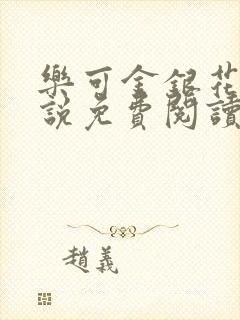 樂可金銀花
說免費閱讀
趙義